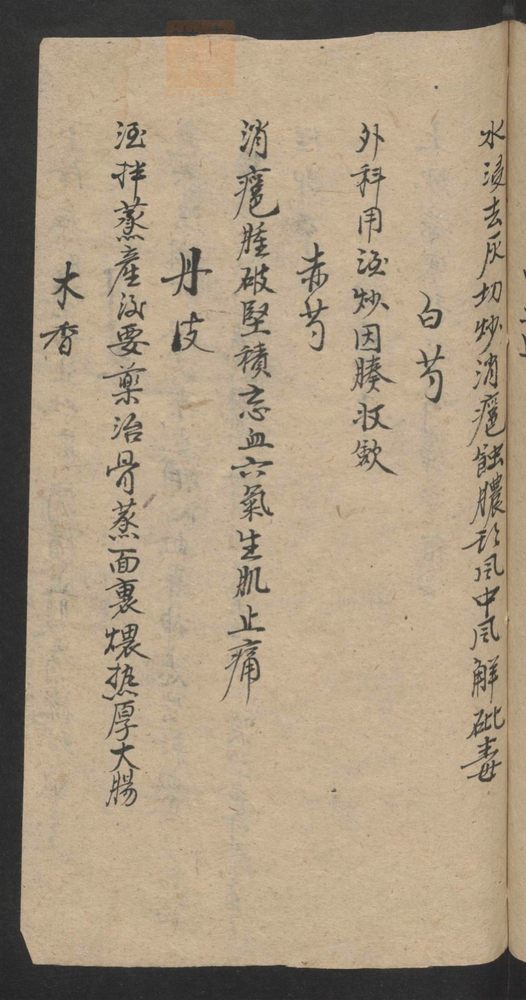 水浸去灰切炒消瘡蝕膿頭风中风解砒毒
白芍
外科用酒炒因膝收歛
赤芍
消瘡腫破堅積忘血六氣生肌止痛
丹皮
酒拌蒸產後要藥治骨蒸面裹煨热厚大腸
木香